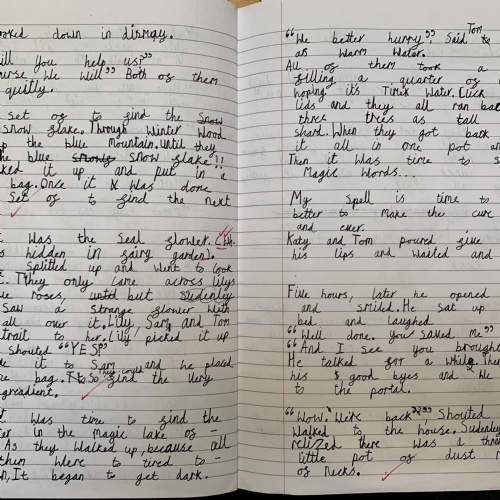 ooked down in dismay.
ill you help us?"
urse. We will" Both of them
quilty.
set of to find the snow
snow flake. Through winter wood
p the blue mountain. until they
he blue snowy snow flake!!
ked it up and put in a
bag. Once it was done
set of to find the next
I was the seal flower. (Wh
s hidden in fairy garden).
splitted up and went to look
. They only came across lilys
e roses, until but suddenley
saw a strange flower with
all over it. Lily, Sam, and Tom
trait to her. Lily picked it up
shouted "YES!"
de it to Sam and he placed
he bag. To So they could find the very
gredient.
t was time to find the
ter in the magic lake of -
As they walked up, because all
them were to tired to -
n, It began to get dark.
"We better hurry" Said Tom
as warm water.
All of them took a
filling a quarter of
hoping its Timix water. Click
lids and they all ran ba
three trees as tall
shard. When they got back
it all in one pot an
Then it was time to s
Magic words...
My spell is time to
better to make the cure
and ever.
Katy and Tom poured five
his lips and waited and
Five hours, later he opened
and smiled. He sat up
bed and laughed
"Well done. you saved me"
"And I see you brought
He talked for a while. Then
his good byes and we
to the portal.
"Wow! We're back" Shouted
walked to the house. Suddenley
relized there was a thr
little pot of dust
of necks.